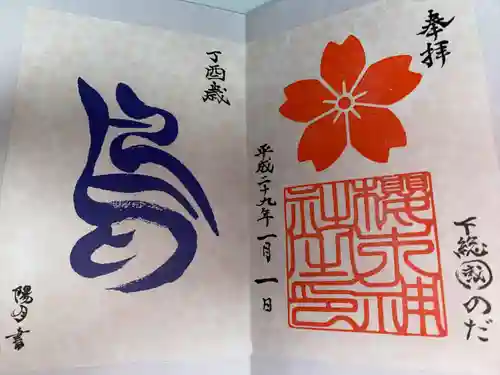 奉拝
櫻木神
社之印
下総國のだ
平成二十九年一月一日
丁酉歳